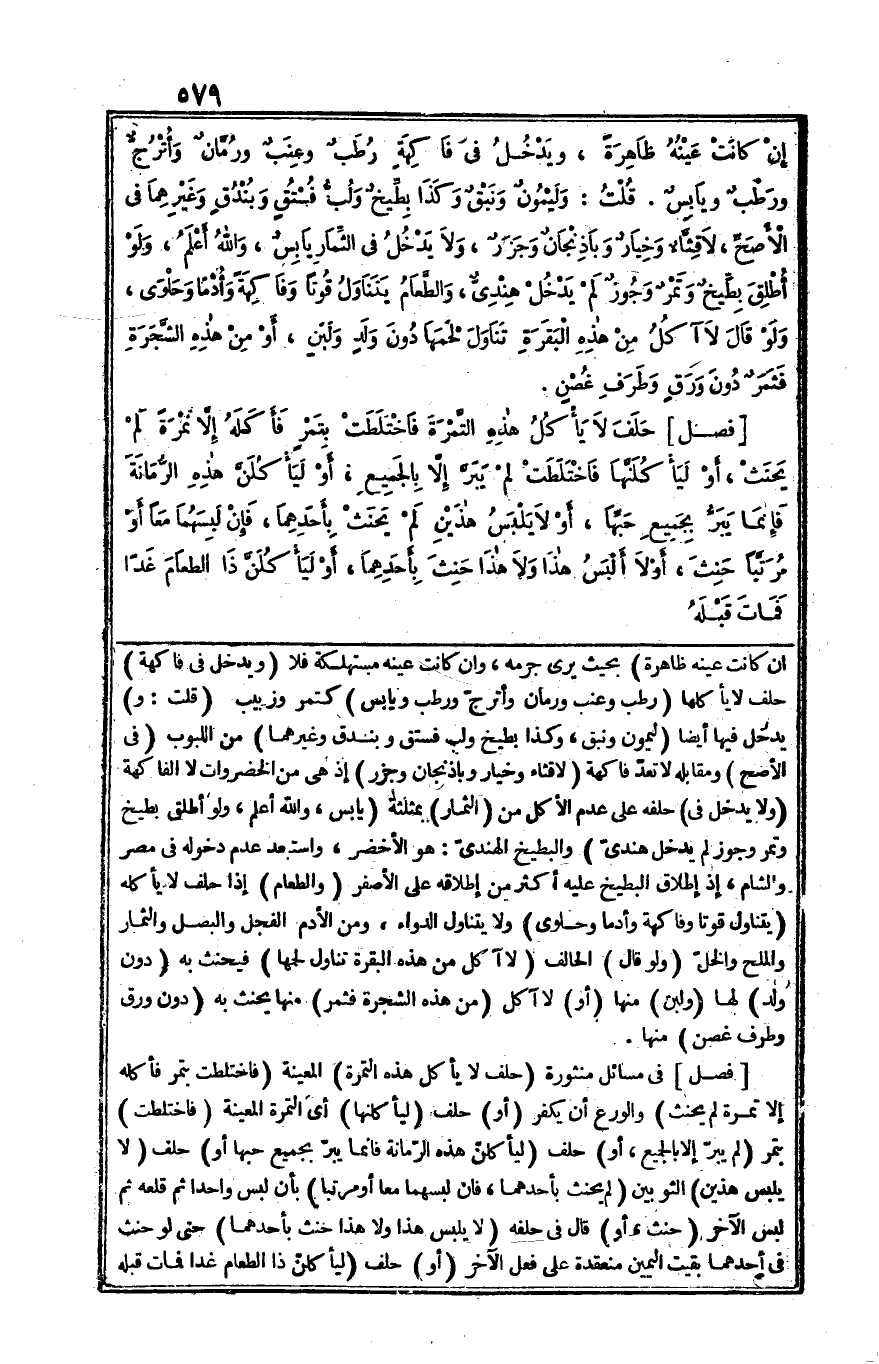 ٥٧٩
إِنْ كَانَتْ عَيْنُهُ ظَاهِرَةً ، ويَدْخُلُ فى فَا كِهَةٍ رُطَبٌ وعِنَبٌ ورُمَّانٌ وَأُتْرُجٌّ
ورَطْبٌ ويَابِسٌ . قُلْتُ : وَلَيْمُونٌ وَنَبْقٌ وَكَذَا بِطِّيخٌ وَلُبُّ فُسْتُقٍ وَبُنْدُقٍ وَغَيْرِهِمَا فى
الْأَصَحِّ ، لَاقِثَّاءٌ وَخِيَارٌ وَبَاذِنْجَانٌ وَجَزَرٌ ، وَلاَ يَدْخُلُ فى الثِّمَارِ يَابِسٌ ، وَاللهُ أَعْلَمُ ، وَلَوْ
أُطْلِقَ بِطِّيخٌ وَتَمْرٌ وَجُوزٌ لَمْ يَدْخُلْ هِنْدِىٌّ ، وَالطَّعَامُ يَتَنَاوَلُ قُوتًا وَفَا كِهَةً وَأُدْمًا وَحَلْوَى ،
وَلَوْ قَالَ لاَ آ كُلُ مِنْ هٰذِهِ الْبَقَرَةِ تَنَاوَلَ لَحْمَهَا دُونَ وَلَدٍ وَلَبَنٍ ، أَوْ مِنْ هٰذِهِ الشَّجَرَةِ
فَثَمَرٌ دُونَ وَرَقٍ وَطَرَفِ غُصْنٍ .
[ فصــل ] حَلَفَ لاَ يَأْ كُلُ هٰذِهِ التَّمْرَةَ فَاخْتَلَطَتْ بِتَمْرٍ فَأَ كَلَهُ إِلَّا تَمْرَةً لَمْ
يَحْنَثْ ، أَوْ لَيَأْ كُلَنَّهَا فَاخْتَلَطَتْ لَمْ يَبَرَّ إِلَّا بِالجَمِيعِ ، أَوْ لَيَأْ كُلَنَّ هٰذِهِ الرُّمَّانَةَ
فَإِنَّمَا يَبَرُّ بِجَمِيعِ حَبِّهَا ، أَوْ لَايَلْبَسُ هٰذَيْنِ لَمْ يَحْنَثْ بِأَحَدِهِمَا ، فَإِنْ لَبِسَهُمَا مَعًا أَوْ
مُرَتَّبًا حَنِثَ ، أَوْلاَ أَلْبَسُ هٰذَا وَلاَ هٰذَا حَنِثَ بِأَحَدِهِمَا ، أَوْ لَيَأْ كُلَنَّ ذَا الطعامَ غَدًا
فَمَاتَ قَبْلَهُ
ان كانت عينه ظاهرة ) بحيث يرى جرمه ، وان كانت عينه مستهلكة فلا ( ويدخل فى فاكهة )
حلف لايأ كلها ( رطب وعنب ورمان وأترجّ ورطب ويابس ) كتمر وزبيب ( قلت : و )
يدخل فيها أيضا ( ليمون ونبق ، وكذا بطيخ ولب فستق و بنــدق وغيرهمـا ) من اللبوب ( فى
الأصح ) ومقابله لاتعدّ فاكهة ( لاقثاء وخيار وباذنجان وجزر ) إذ هى من الخضروات لا الفاكهة
( ولا يدخل فى ) حلفه على عدم الأكل من ( الثمـار ) بمثلثة ( يابس ، والله أعلم ، ولو أطلق بطيخ
وتمر وجوز لم يدخل هندىّ ) والبطيخ الهندىّ : هو الأخضر ، واستبعد عدم دخوله فى مصر
والشام ، إذ إطلاق البطيخ عليه أكثر من إطلاقه على الأصفر ( والطعام ) إذا حلف لايأ كله
( يتناول قوتا وفاكهة وأدما وحــلوى ) ولا يتناول الدواء ، ومن الأدم الفجل والبصــل والثمـار
والملح والخلّ ( ولو قال ) الحالف ( لا آ كل من هذه البقرة تناول لحمها ) فيحنث به ( دون
ولد ) لهـا ( ولبن ) منها ( أو ) لا آ كل ( من هذه الشجرة فثمر ) منها يحنث به ( دون ورق
وطرف غصن ) منها .
[ فصــل ] فى مسائل منثورة ( حلف لا يأ كل هذه التمرة ) المعينة ( فاختلطت بتمر فأ كله
إلا تمــرة لم يحنث ) والورع أن يكفر ( أو ) حلف ( ليأ كلنها ) أى التمرة المعينة ( فاختلطت )
بتمر ( لم يبرّ إلابالجميع ، أو ) حلف ( ليأ كلنّ هذه الرّمانة فانمـا يبرّ بجميع حبها أو ) حلف ( لا
يلبس هذين ) الثو بين ( لم يحنث بأحدهمـا ، فان لبسهما معا أومرتبا ) بأن لبس واحدا ثم قلعه ثم
لبس الآخر ( حنث ، أو ) قال فى حلفه ( لا يلبس هذا ولا هذا حنث بأحدهمـا ) حتى لو حنث
فى أحدهمـا بقيت اليمين منعقدة على فعل الآخر ( أو ) حلف ( ليأ كلنّ ذا الطعام غدا فمـات قبله